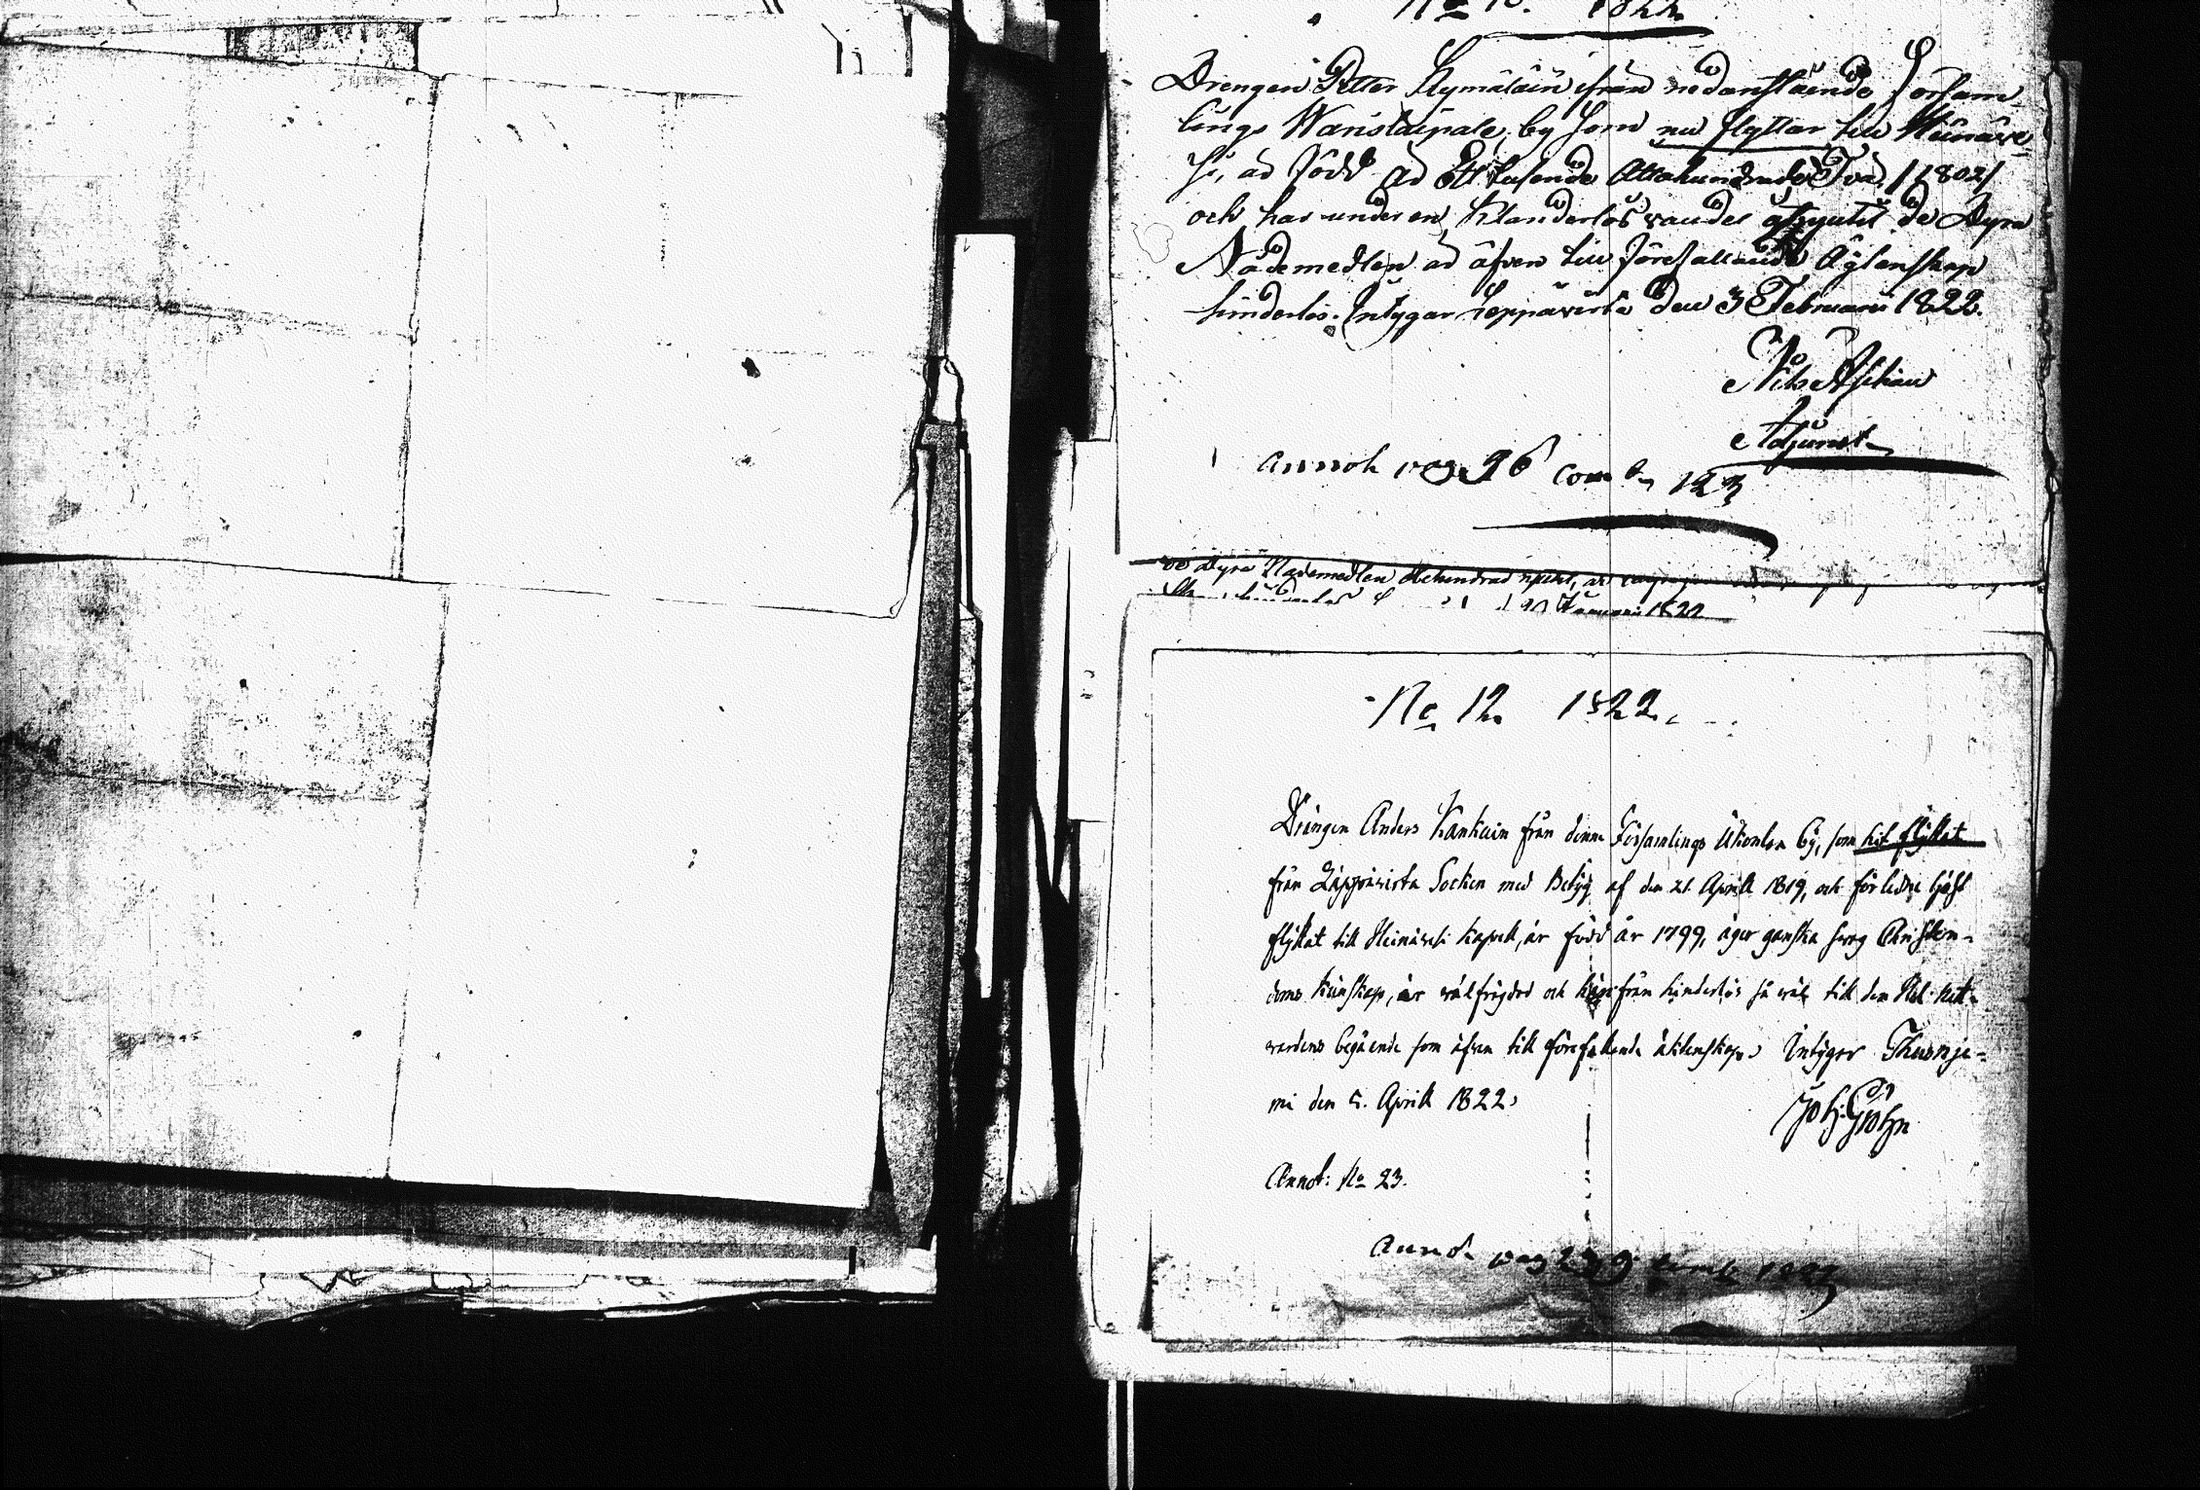 No 10. 1822.
Drengen Petter Kymäläin ifrån nedanstående Försam
lings Waristaipale by som nu flyttar till Heinäve
si, är född år Ett tusende Ottahundrade Två /1802/
och har under en klanderlös vandel åtnjutit de Dyra
Nådemedlen är äfven till förefallande Äktenskap
hinderlös. Intygar Leppävirta den 3 Februarii 1822.
Nils Aschan
Adjunct
annot pag. 96 comb. 123
de dyra Nådemedlen
Januarii 1822
No 12. 1822.
Drängen Anders Kankain från denne Församlings Ukonlax by, som hit flyttat
från Läppävirta Socken med Betyg af den 21. Aprill 1819, och förledne höst
flyttat till Heinävesi Kapell, är född år 1799, äger ganska swag Christen-
doms kunskap, är wälfrägdad och härifrån hinderlös så wäl till den Hel. Natt-
wardens begående som äfwen till förefallande äktenskap. Intygar Thusnje-
mi den 5. Aprill 1822.
Joh: Grohn
Annot: No 23.
Annot. pag